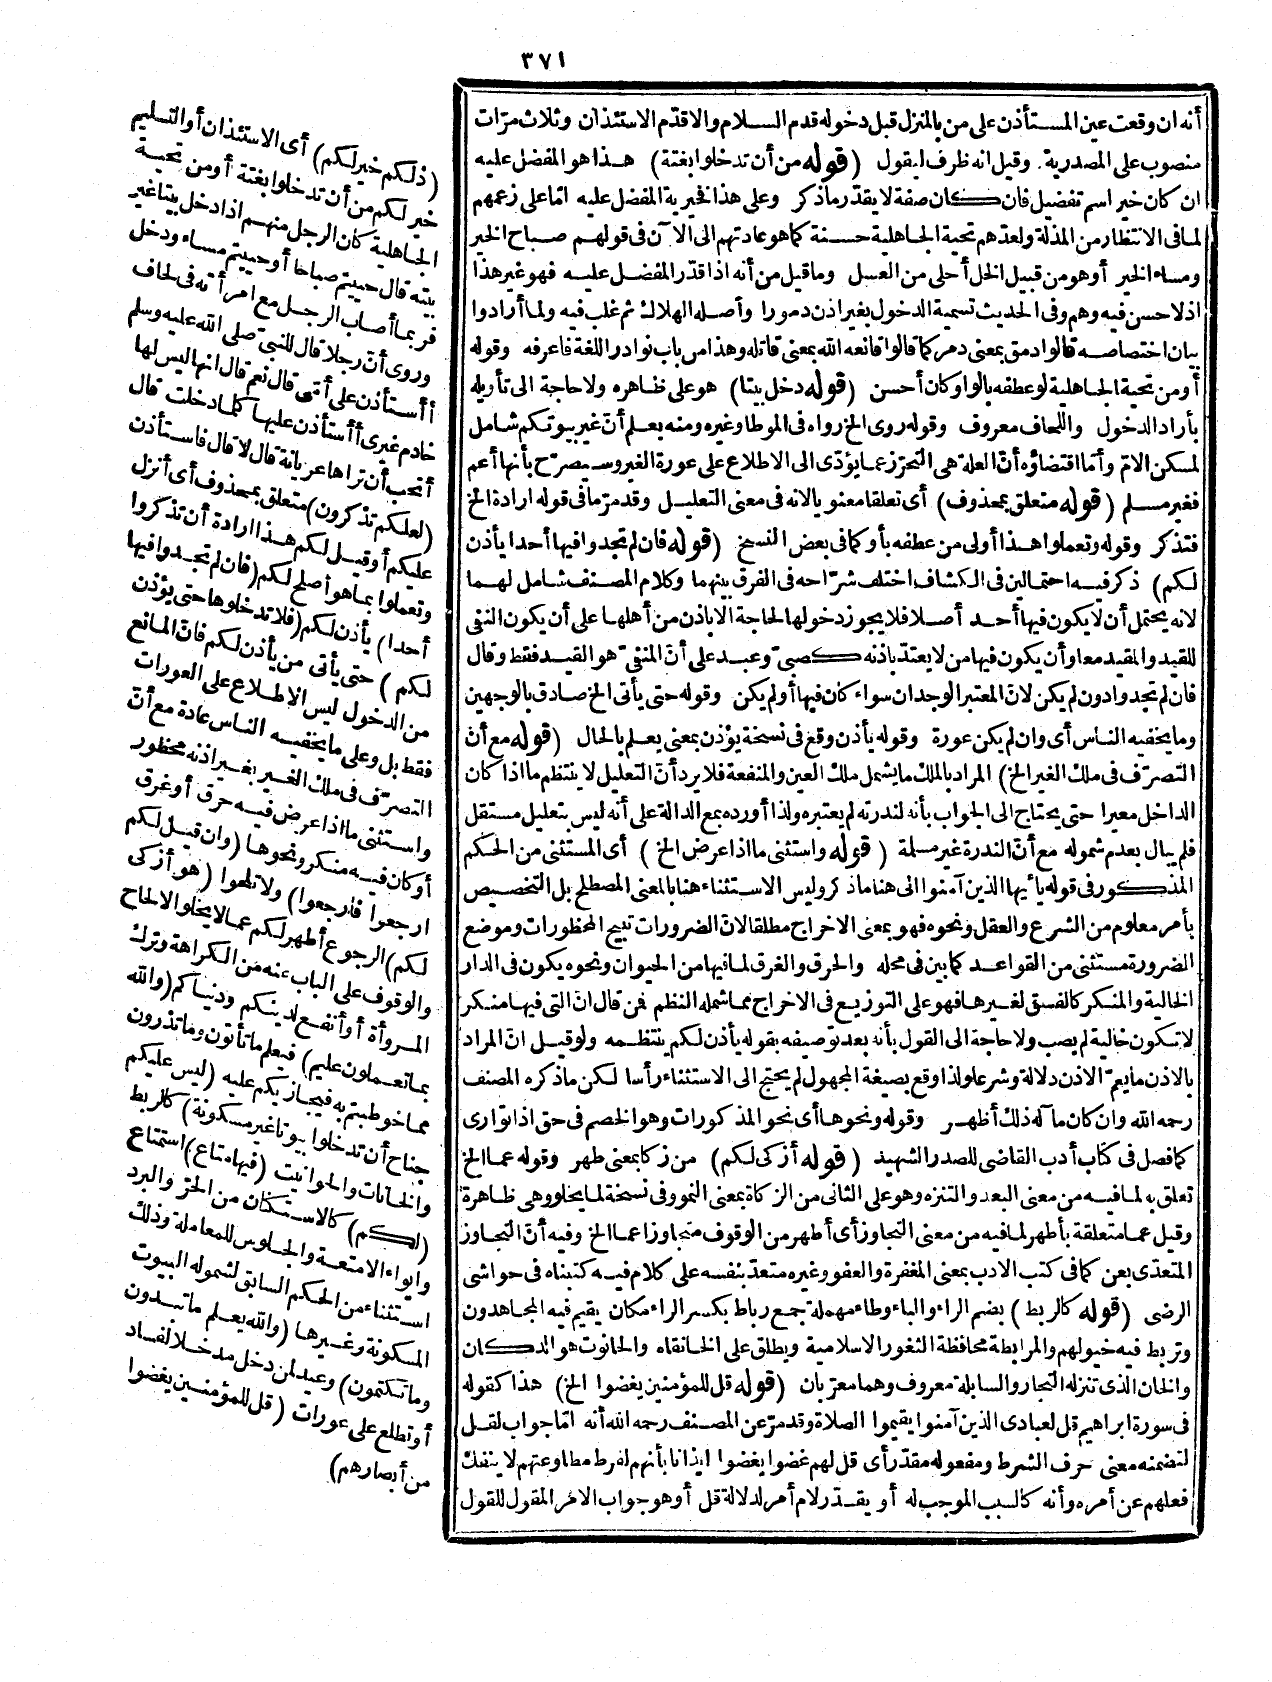 ٣٧١
أنه ان وقعت عين المستأذن على من بالمنزل قبل دخوله قدم السلام والا قدّم الاستئذان وثلاث مرّات
منصوب على المصدرية. وقيل انه ظرف ليقول (قوله من أن تدخلوا بغتة) هذا هو المفضل عليه
ان كان خير اسم تفضيل فان كان صفة لا يقدّر ماذكر وعلى هذا فخيرية المفضل عليه امّا على زعمهم
لما فى الانتظار من المذلة ولعدّهم تحية الجاهلية حسنة كما هو عادتهم الى الآن فى قولهم صباح الخير
ومساء الخير أو هو من قبيل الخل أحلى من العسل وما قيل من أنه اذا قدّر المفضل عليه فهو غير هذا
اذ لا حسن فيه وهم وفى الحديث تسمية الدخول بغير اذن دمورا وأصله الهلاك ثم غلب فيه ولما أرادوا
بيان اختصاصه قالوا دمق بمعنى دمر كما قالوا قاتعه الله بمعنى قاتله وهذا من باب نوادر اللغة فاعرفه وقوله
أو من تحية الجاهلية لو عطفه بالواو كان أحسن (قوله دخل بيتا) هو على ظاهره ولا حاجة الى تأويله
بأراد الدخول واللحاف معروف وقوله روى الخ رواه فى الموطا وغيره ومنه يعلم أنّ غير بيوتكم شامل
لمسكن الامّ وأما اقتضاؤه أنّ العلة هى التحرّز عما يؤدّى الى الاطلاع على عورة الغير وسيصرّح بأنها أعم
فغير مسلم (قوله متعلق بمحذوف) أى تعلقا معنويا لانه فى معنى التعليل وقد مرّ ما فى قوله ارادة الخ
فتذكر وقوله وتعملوا هذا أولى من عطفه بأو كما فى بعض النسخ (قوله فان لم تجدوا فيها أحدا يأذن
لكم) ذكر فيه احتمالين فى الكشاف اختلف شرّاحه فى الفرق بينهما وكلام المصنف شامل لهما
لانه يحتمل أن لا يكون فيها أحد أصلا فلا يجوز دخولها لحاجة الا باذن من أهلها على أن يكون النفى
للقيد والمقيد معا وأن يكون فيها من لا يعتدّ باذنه كصبىّ وعبد على أنّ المنفىّ هو القيد فقط وقال
فان لم تجدوا دون لم يكن لانّ المعتبر الوجدان سواء كان فيها أو لم يكن وقوله حتى يأتى الخ صادق بالوجهين
وما يخفيه الناس أى وان لم يكن عورة وقوله يأذن وقع فى نسخة يؤذن بمعنى يعلم بالحال (قوله مع أنّ
التصرّف فى ملك الغير الخ) المراد بالملك ما يشمل ملك العين والمنفعة فلا يرد أنّ التعليل لا ينتظم ما اذا كان
الداخل معيرا حتى يحتاج الى الجواب بأنه لندرته لم يعتبره ولذا أورده بمع الدالة على أنه ليس بتعليل مستقل
فلم يبال بعدم شموله مع أنّ الندرة غير مسلمة (قوله واستثنى ما اذا عرض الخ) أى المستثنى من الحكم
المذكور فى قوله يأيها الذين آمنوا الى هنا ماذكر وليس الاستثناء هنا بالمعنى المصطلح بل التخصيص
بأمر معلوم من الشرع والعقل ونحوه فهو بمعنى الاخراج مطلقا لانّ الضرورات تبيح المحظورات وموضع
الضرورة مستثنى من القواعد كما بين فى محله والحرق والغرق لما فيها من الحيوان ونحوه يكون فى الدار
الخالية والمنكر كالفسق لغيرها فهو على التوزيع فى الاخراج مما شمله النظم فمن قال انّ التى فيها منكر
لا تكون خالية لم يصب ولا حاجة الى القول بأنه بعد توصيفه بقوله يأذن لكم ينتظمه ولو قيل انّ المراد
بالاذن ما يعمّ الاذن دلالة وشرعا ولذا وقع بصيغة المجهول لم يحتج الى الاستثناء رأسا لكن ماذكره المصنف
رحمه الله وان كان مآله ذلك أظهر وقوله ونحوها أى نحو المذكورات وهو الخصم فى حق اذا توارى
كما فصل فى كتاب أدب القاضى للصدر الشهيد (قوله أزكى لكم) من زكا بمعنى طهر وقوله عما الخ
تعلق به لما فيه من معنى البعد والتنزه وهو على الثانى من الزكاة بمعنى النمو وفى نسخة لما يخلو وهى ظاهرة
وقيل عما متعلقة بأطهر لما فيه من معنى التجاوز أى أطهر من الوقوف متجاوزا عما الخ وفيه أنّ التجاوز
المتعدّى بعن كما فى كتب الادب بمعنى المغفرة والعفو وغيره متعدّ بنفسه على كلام فيه كتبناه فى حواشى
الرضى (قوله كالربط) بضم الراء والباء وطاء مهملة جمع رباط بكسر الراء مكان يقيم فيه المجاهدون
وتربط فيه خيولهم والمرابطة محافظة الثغور الاسلامية ويطلق على الخانقاه والحانوت هو الدكان
والخان الذى تنزله التجار والسابلة معروف وهما معرّبان (قوله قل للمؤمنين يغضوا الخ) هذا كقوله
فى سورة ابراهيم قل لعبادى الذين آمنوا يقيموا الصلاة وقد مرّ عن المصنف رحمه الله أنه امّا جواب لقل
لتضمنه معنى حرف الشرط ومفعوله مقدّر أى قل لهم غضوا يغضوا ايذانا بأنهم لفرط مطاوعتهم لا ينفك
فعلهم عن أمره وأنه كالسبب الموجب له أو يقدّر لام أمر لدلالة قل أو هو جواب الامر المقول للقول
(ذلكم خير لكم) أى الاستئذان أو التسليم
خير لكم من أن تدخلوا بغتة أو من تحية
الجاهلية كان الرجل منهم اذا دخل بيتا غير
بيته قال حييتم صباحا أو حييتم مساء ودخل
فربما أصاب الرجل مع امرأته فى لحاف
وروى أنّ رجلا قال للنبىّ صلى الله عليه وسلم
أأستأذن على أمّى قال نعم قال انها ليس لها
خادم غيرى أأستأذن عليها كلما دخلت قال
أتحب أن تراها عريانة قال لا قال فاستأذن
(لعلكم تذكرون) متعلق بمحذوف أى أنزل
عليكم أو قيل لكم هذا ارادة أن تذكروا
وتعملوا بما هو أصلح لكم (فان لم تجدوا فيها
أحدا) يأذن لكم (فلا تدخلوها حتى يؤذن
لكم) حتى يأتى من يأذن لكم فانّ المانع
من الدخول ليس الاطلاع على العورات
فقط بل وعلى ما يخفيه الناس عادة مع أنّ
التصرّف فى ملك الغير بغير اذنه محظور
واستثنى ما اذا عرض فيه حرق أو غرق
أو كان فيه منكر ونحوها (وان قيل لكم
ارجعوا فارجعوا) ولا تلحوا (هو أزكى
لكم) الرجوع أطهر لكم عما لا يخلو الالحاح
والوقوف على الباب عنه من الكراهة وترك
المروأة أو أنفع لدينكم ودنياكم (والله
بما تعملون عليم) فيعلم ما تأتون وما تذرون
مما خوطبتم به فيجازيكم عليه (ليس عليكم
جناح أن تدخلوا بيوتا غير مسكونة) كالربط
والخانات والحوانيت (فيها متاع) استمتاع
(لكم) كالاستكنان من الحرّ والبرد
وايواء الامتعة والجلوس للمعاملة وذلك
استثناء من الحكم السابق لشموله البيوت
المسكونة وغيرها (والله يعلم ما تبدون
وما تكتمون) وعيد لمن دخل مدخلا لفساد
أو تطلع على عورات (قل للمؤمنين يغضوا
من أبصارهم)